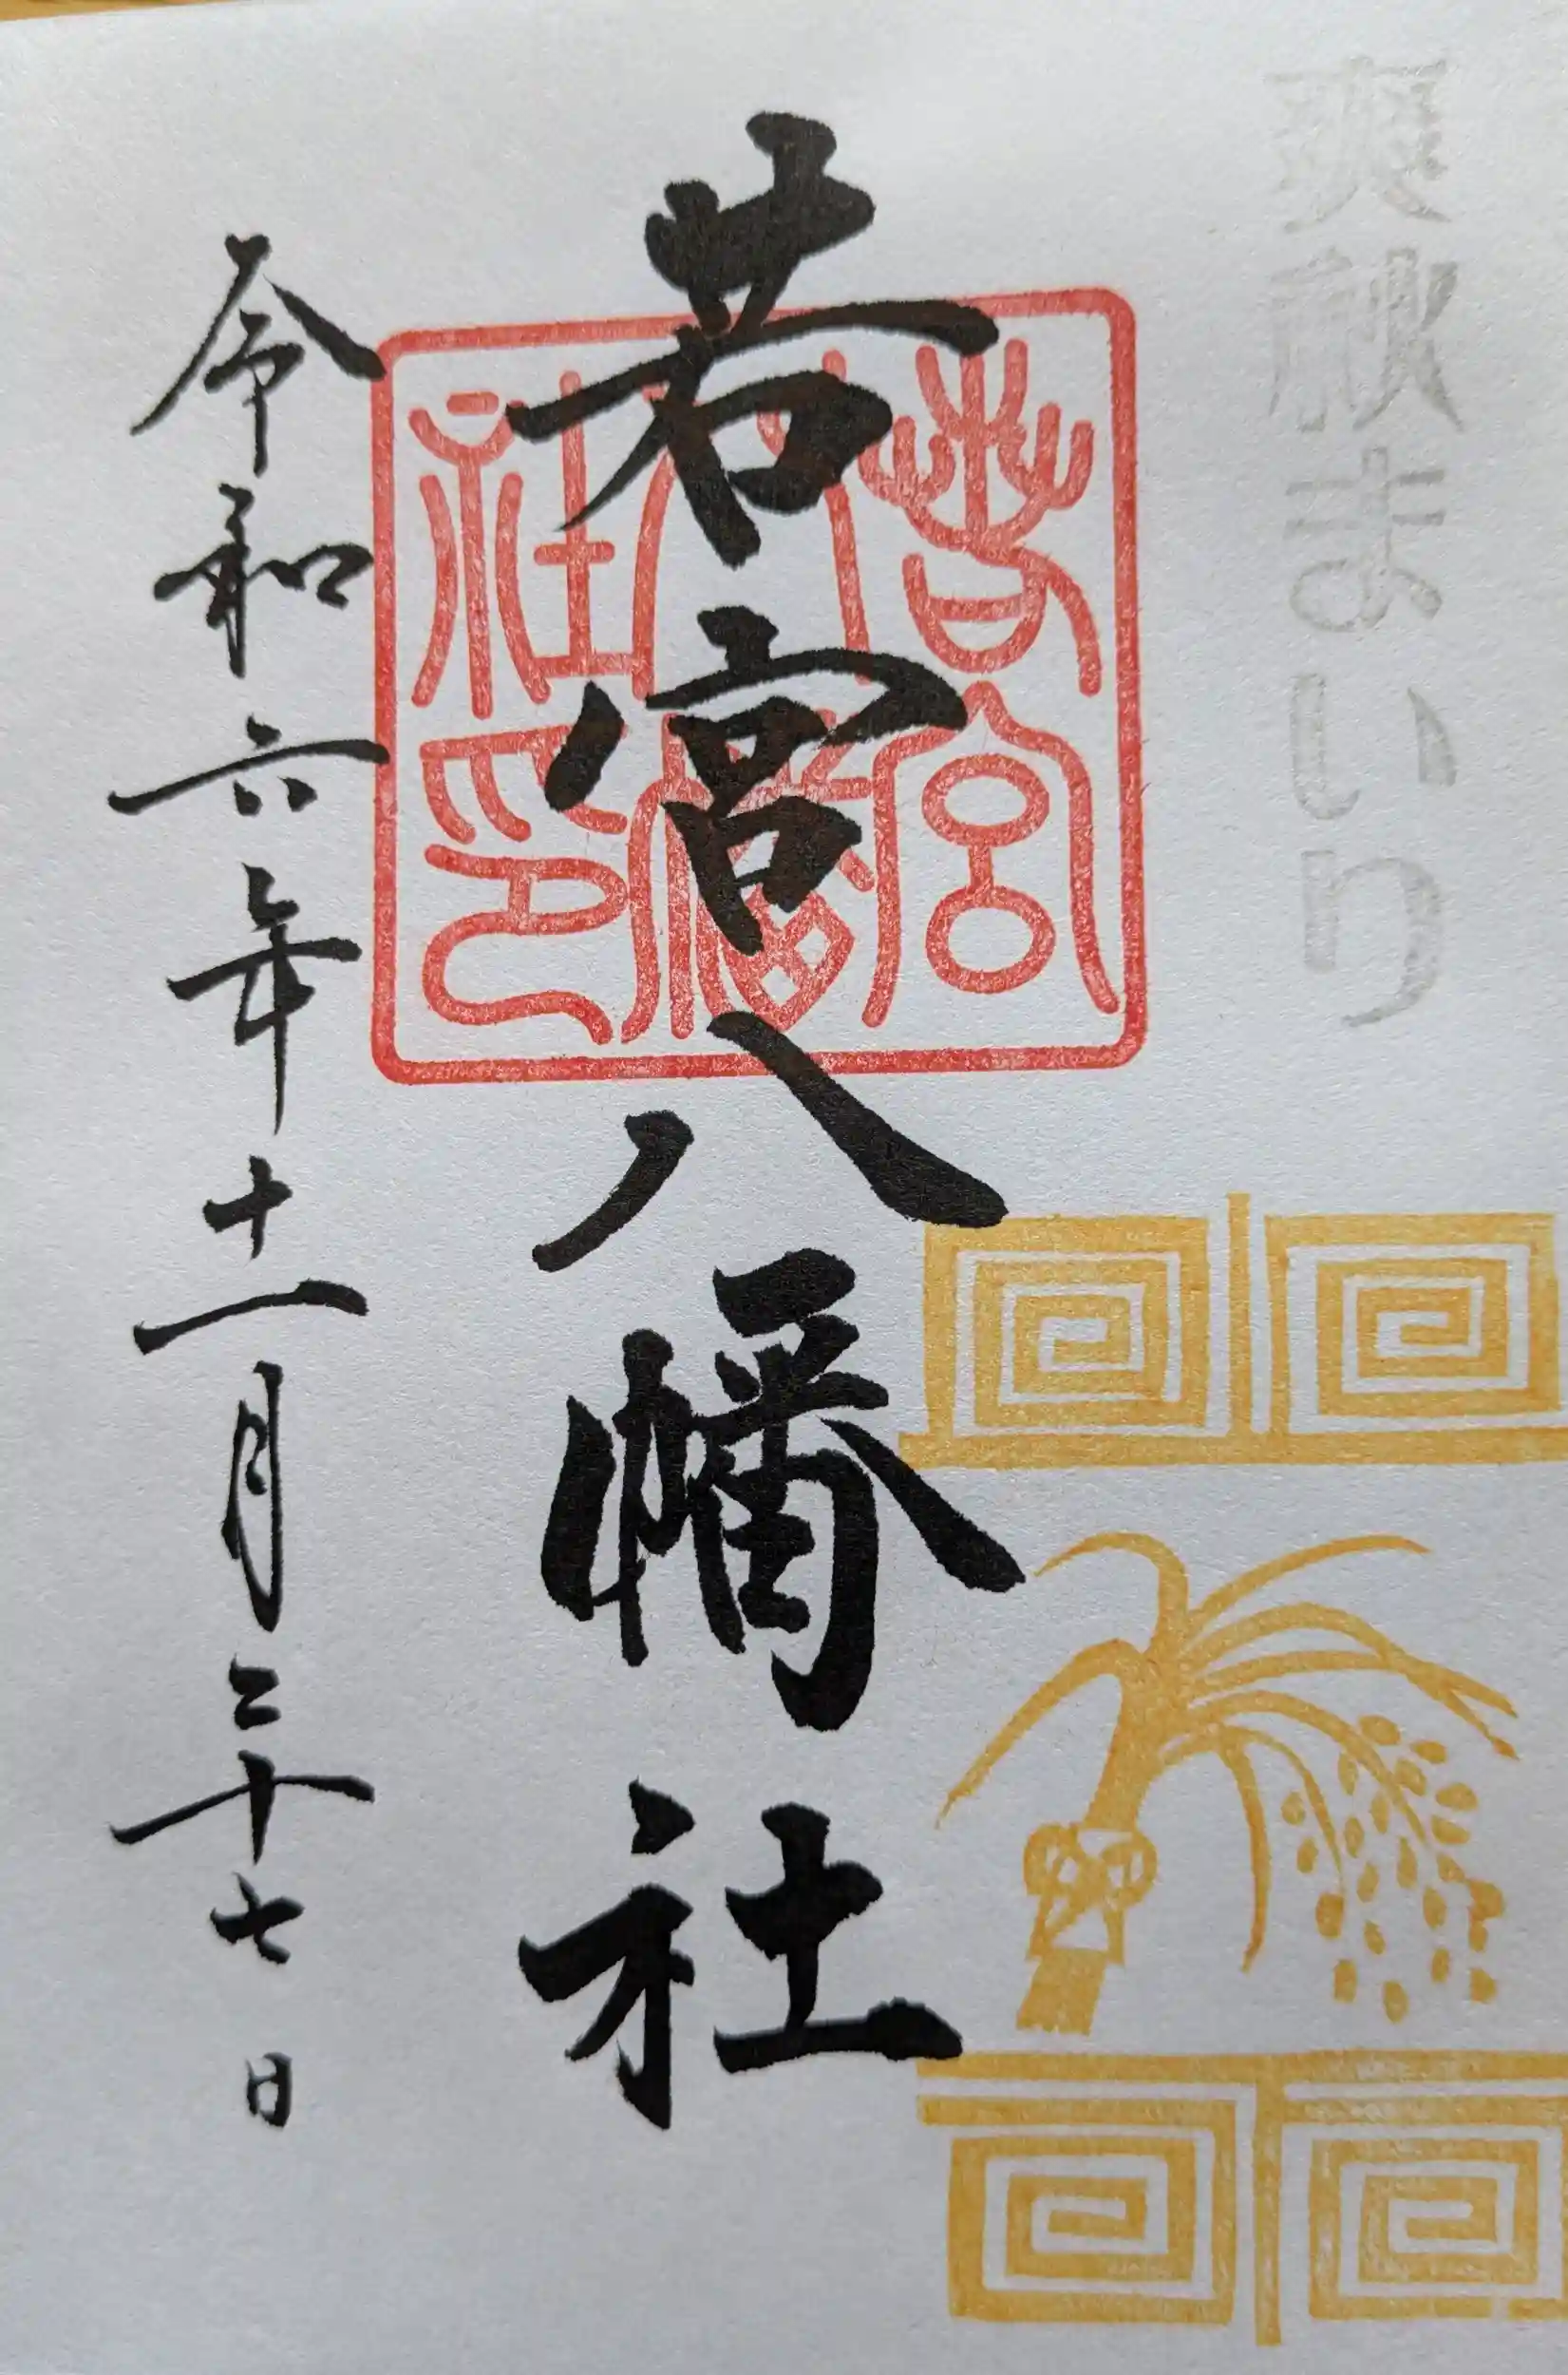 爽秋まいり
若宮八幡社
若宮
八幡
社印
令和六年十一月二十七日